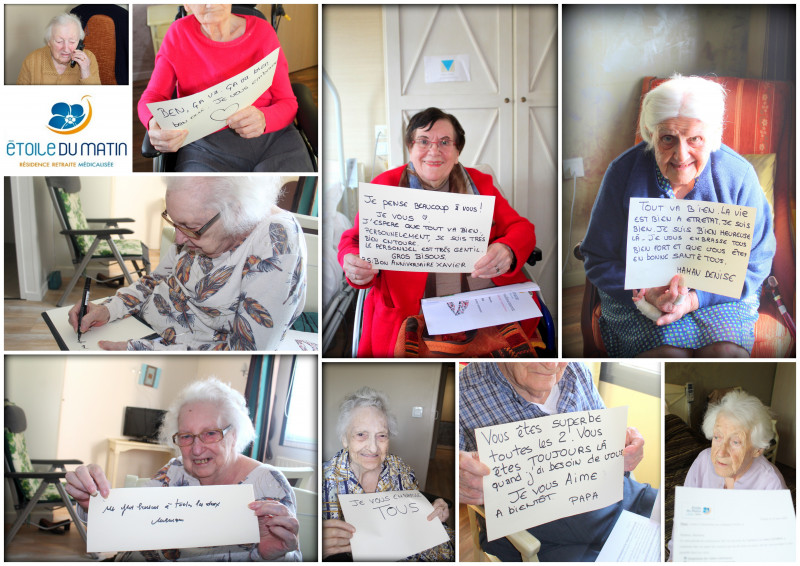 ÉTOILE DU MATIN
RÉSIDENCE RETRAITE MÉDICALISÉE
BEN, ÇA VA. ÇA VA BIEN.
JE VOUS
JE PENSE BEAUCOUP À VOUS!
JE VOUS ♡.
J'ESPÈRE QUE TOUT VA BIEN,
PERSONNELLEMENT, JE SUIS TRÈS
BIEN ENTOURÉ.
LE PERSONNEL EST TRÈS GENTIL.
GROS BISOUS.
P.S: BON ANNIVERSAIRE XAVIER
TOUT VA BIEN. LA VIE
EST BIEN A ETRETAT. JE SUIS
BIEN. JE SUIS BIEN HEUREUSE
LÀ. JE VOUS EMBRASSE TOUS
BIEN FORT ET QUE VOUS ÊTES
EN BONNE SANTÉ TOUS.
MAMAN DENISE
à toutes les deux
JE VOUS EMBRASSE
TOUS
VOUS ÊTES SUPERBE
TOUTES LES 2! VOUS
ÊTES TOUJOURS LÀ
QUAND J'AI BESOIN DE VOUS
JE VOUS AIME
A BIENTÔT PAPA